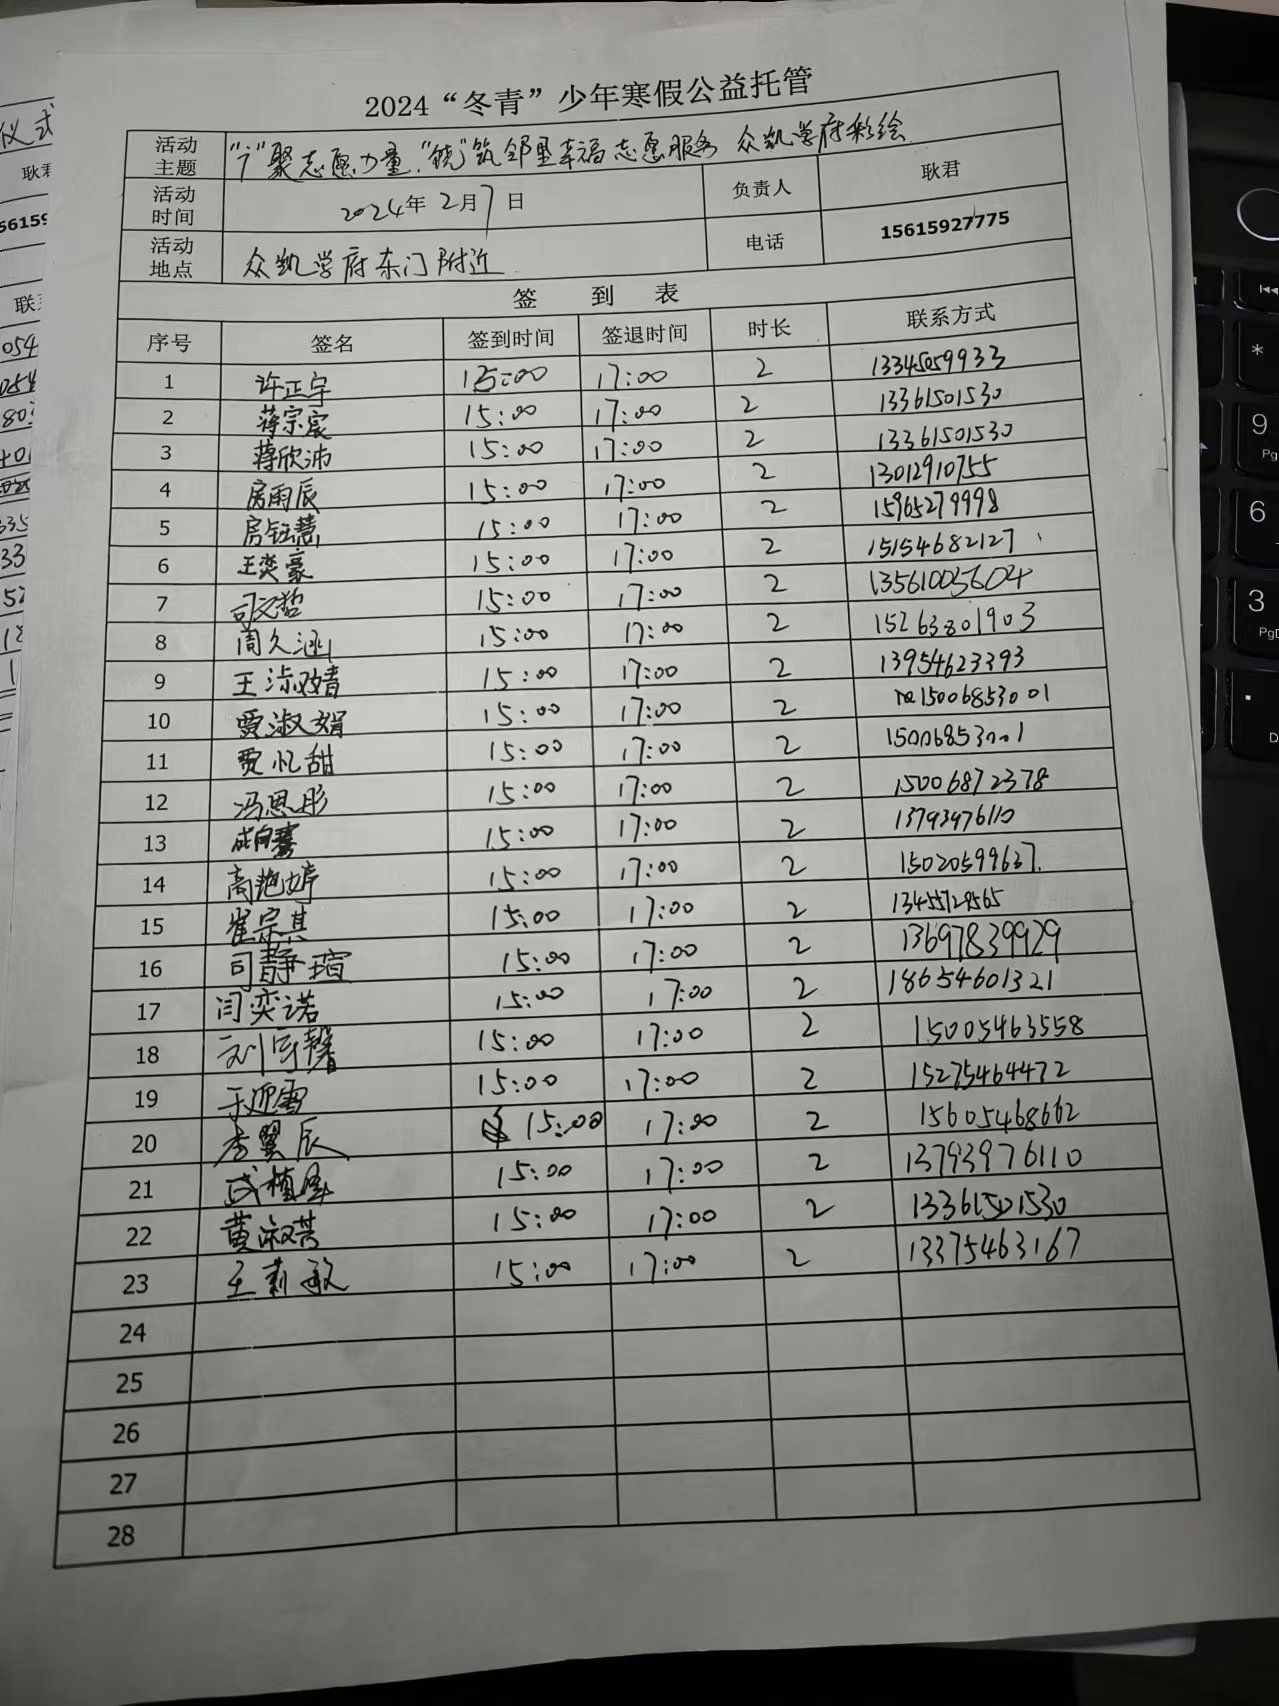 2024“冬青”少年寒假公益托管
活动主题 “广”聚志愿力量,“饶”筑邻里幸福志愿服务 众凯学府彩绘
活动时间 2024年2月7日 负责人 耿君
活动地点 众凯学府东门附近 电话 15615927775
签 到 表
序号 签名 签到时间 签退时间 时长 联系方式
1 许正宇 15:00 17:00 2 13345059933
2 蒋宗宸 15:00 17:00 2 13361501530
3 蒋欣沛 15:00 17:00 2 13361501530
4 房雨辰 15:00 17:00 2 13012910755
5 房钰慧 15:00 17:00 2 15965279998
6 王奕豪 15:00 17:00 2 15154682127
7 司文哲 15:00 17:00 2 13561005604
8 周久涵 15:00 17:00 2 15263801903
9 王淑婧 15:00 17:00 2 13954623393
10 贾淑娟 15:00 17:00 2 15006853001
11 贾忆甜 15:00 17:00 2 15006853001
12 冯思彤 15:00 17:00 2 15006872378
13 15:00 17:00 2 13793976110
14 高艳婷 15:00 17:00 2 15020599637
15 崔宗其 15:00 17:00 2
16 司静瑄 15:00 17:00 2 13697839929
17 闫奕诺 15:00 17:00 2 18654601321
18 刘宇馨 15:00 17:00 2 15005463558
19 于迎雪 15:00 17:00 2 15275464472
20 李翼辰 15:00 17:00 2 15605468662
21 15:00 17:00 2 13793976110
22 黄淑菁 15:00 17:00 2 13361501530
23 王莉敏 15:00 17:00 2 13375463167
24
25
26
27
28